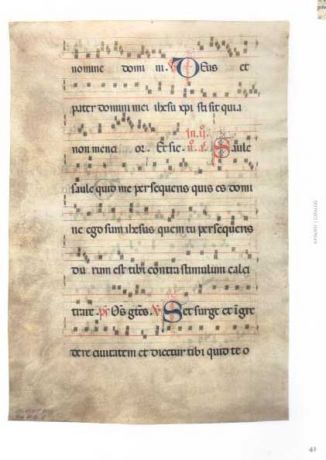 nomine domi ni. Deus et
pater domini mei ihesu xpi sit sit quia
non mencior. Et sic Saule
saule quid me persequens quis es domi
ne ego sum ihesus quem tu persequens
durum est tibi contra stimulum calci
trare. Set surge et ingre
dere civitatem et dicetur tibi quid te o
41